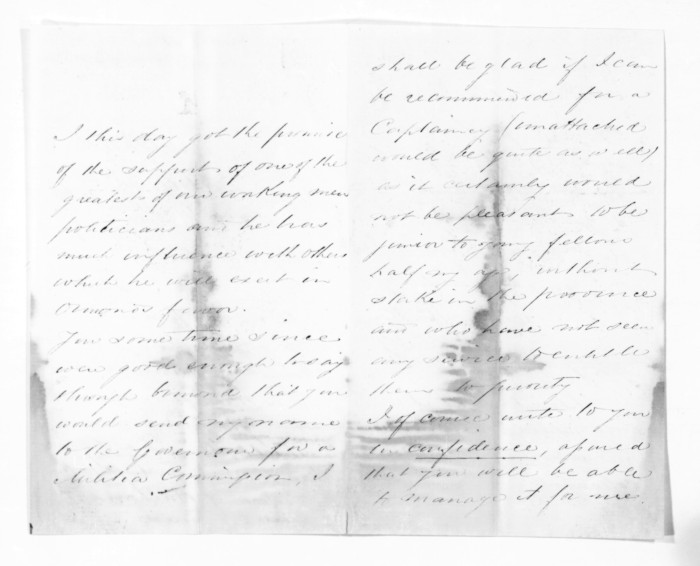 I this day got the promise
of the support of one of the
greatest of our working men
politicians and he has
much influence with others
which he will exert in
favor.
You some time since
were good enough to say
through that you
would send my name
to the Governor for a
Militia Commission, I
shall be glad if I can
be recommended for a
Captaincy (unattached
would be quite as well)
as it certainly would
not be pleasant to be
junior to young fellows
half my age, without
stake in the province
and who have not seen
any service to entitle
them to priority
I of course write to you
in confidence, assured
that you will be able
to manage it for me.